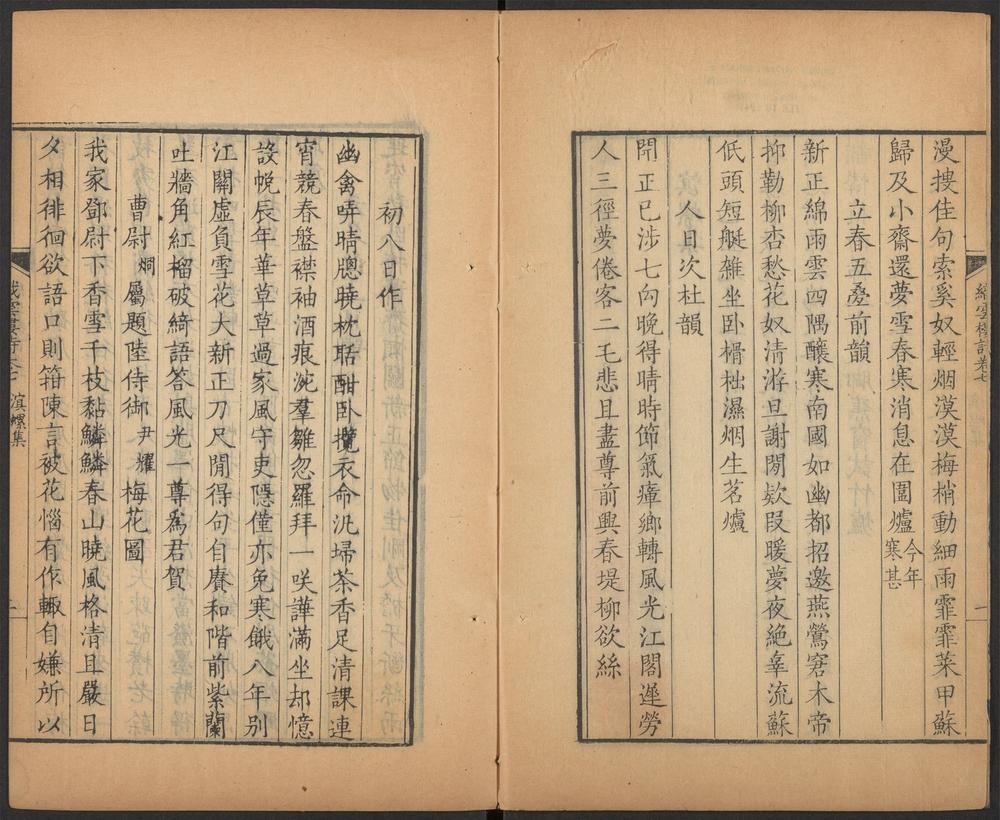 漫捜佳句索奚奴輕烟漠漠梅梢動細雨霏霏菜甲蘇
歸及小齋還夢雪春寒消息在圍爐今年寒甚
立春五疊前韻
新正綿雨雲四隅釀寒南國如幽都招邀燕鶯窘木帝
抑勒柳杏愁花奴清游旦謝閒欵段暖夢夜絶辜流蘇
低頭短艇雜坐卧榾柮濕烟生茗爐
人日次杜韻
開正已涉七向晚得晴時節氣瘴鄉轉風光江閣遲勞
人三徑夢倦客二毛悲且盡尊前興春堤柳欲絲
初八日作
幽禽哢晴牕曉枕聒酣卧攬衣命汎埽茶香足清課連
宵競春盤襟袖酒痕涴羣雛忽羅拜一咲譁滿坐却憶
設帨辰年華草草過家風守吏隱僅亦免寒餓八年别
江關虚負雪花大新正刀尺閒得句自賡和階前紫蘭
吐牆角紅榴破綺語答風光一尊爲君賀
曹尉炯屬題陸侍御尹耀梅花圖
我家鄧尉下香雪千枝黏鱗鱗春山曉風格清且嚴日
夕相徘徊欲語口則箝陳言被花惱有作輙自嫌所以
滇螺集